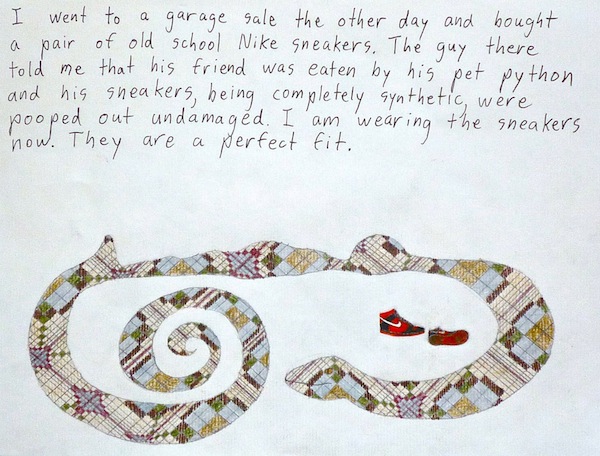 I went to a garage sale the other day and bought
a pair of old school Nike sneakers. The guy there
told me that his friend was eaten by his pet python
and his sneakers, being completely synthetic, were
pooped out undamaged. I am wearing the sneakers
now. They are a perfect fit.